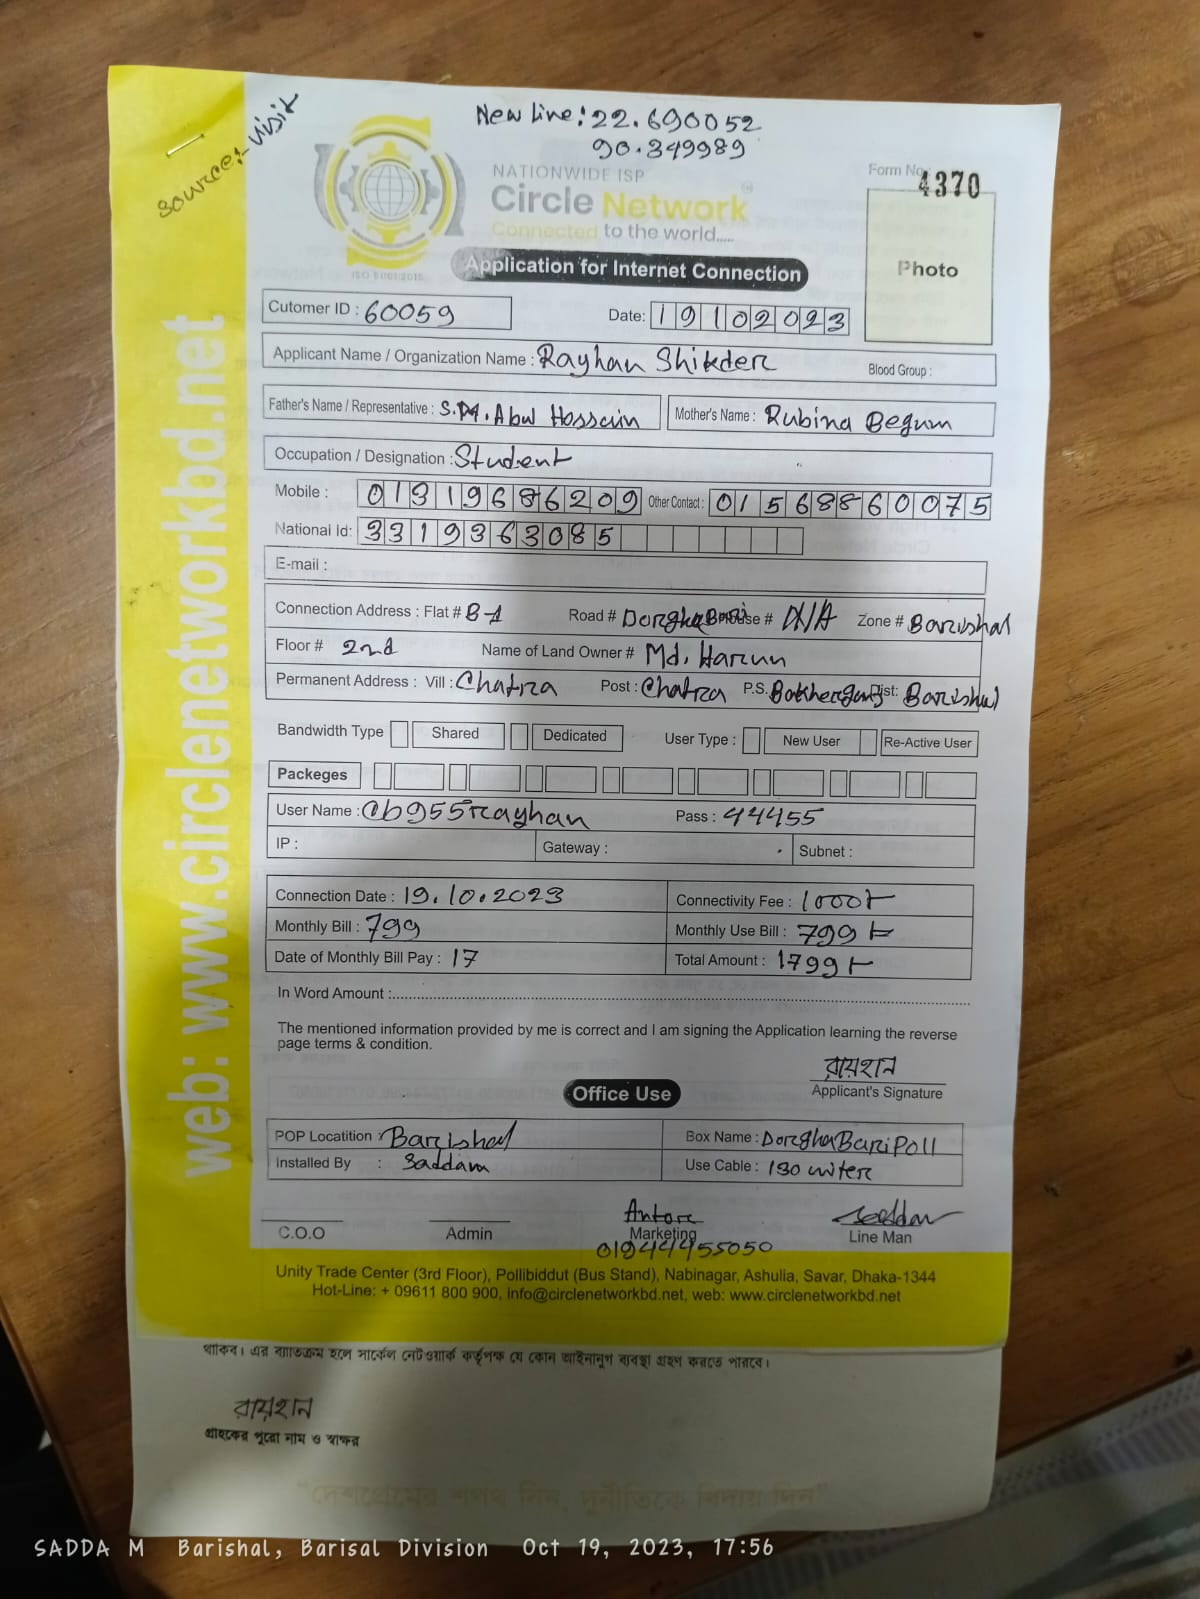 source:- visit
New Line: 22.690052
90.349989
NATIONWIDE ISP
Circle Network
Connected to the world.....
ISO 9001:2015
Form No
4370
Photo
Application for Internet Connection
Cutomer ID : 60059
Date: 19102023
Applicant Name / Organization Name : Rayhan Shikder
Blood Group :
Father's Name / Representative : S.M. Abul Hossain
Mother's Name : Rubina Begum
Occupation / Designation : Student
Mobile : 01319686209
Other Contact : 01568860075
National Id: 3319363085
E-mail :
Connection Address : Flat # B-1 Road # Dorgha Bari House # N/A Zone # Barishal
Floor # 2nd Name of Land Owner # Md. Harun
Permanent Address : Vill : Chatra Post : Chatra P.S. Bakhergonj Dist: Barishal
Bandwidth Type Shared Dedicated User Type : New User Re-Active User
Packeges
User Name : @b955rayhan Pass : 44455
IP : Gateway : Subnet :
Connection Date : 19.10.2023 Connectivity Fee : 1000/-
Monthly Bill : 799 Monthly Use Bill : 799/-
Date of Monthly Bill Pay : 17 Total Amount : 1799/-
In Word Amount :
The mentioned information provided by me is correct and I am signing the Application learning the reverse
page terms & condition.
রায়হান
Applicant's Signature
Office Use
POP Locatition : Barishal Box Name : DorghaBari Poll
Installed By : Saddam Use Cable : 130 miter
C.O.O
Admin
Antor
Marketing
01944455050
Saddam
Line Man
Unity Trade Center (3rd Floor), Pollibiddut (Bus Stand), Nabinagar, Ashulia, Savar, Dhaka-1344
Hot-Line: + 09611 800 900, info@circlenetworkbd.net, web: www.circlenetworkbd.net
web: www.circlenetworkbd.net
থাকিব। এর ব্যাতিক্রম হলে সার্কেল নেটওয়ার্ক কর্তৃপক্ষ যে কোন আইনানুগ ব্যবস্থা গ্রহণ করতে পারবে।
রায়হান
গ্রাহকের পুরো নাম ও স্বাক্ষর
"দেশপ্রেমের শপথ নিন, দুর্নীতিকে বিদায় দিন"
SADDA M Barishal, Barisal Division Oct 19, 2023, 17:56